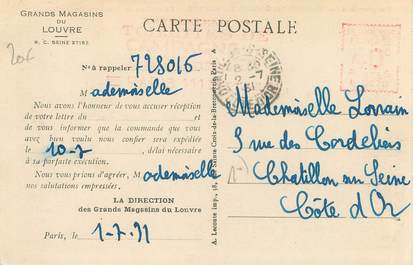 GRANDS MAGASINS
DU
LOUVRE
R. C. SEINE
CARTE POSTALE
N° à rappeler 728016
Mademoiselle
Nous avons l'honneur de vous accuser réception
de votre lettre du et
de vous informer que la commande que vous
avez bien voulu nous confier sera expédiée
le 10-7, délai nécessaire
à sa parfaite exécution.
Nous vous prions d'agréer, Mademoiselle
nos salutations empressées.
LA DIRECTION
des Grands Magasins du Louvre
Paris, le 1-7-31
A. Lecoute imp., 38, Sainte-Croix-de-la-Bretonnerie, Paris
Mademoiselle Lorrain
3 rue des Cordeliers
Chatillon sur Seine
Côte d'Or